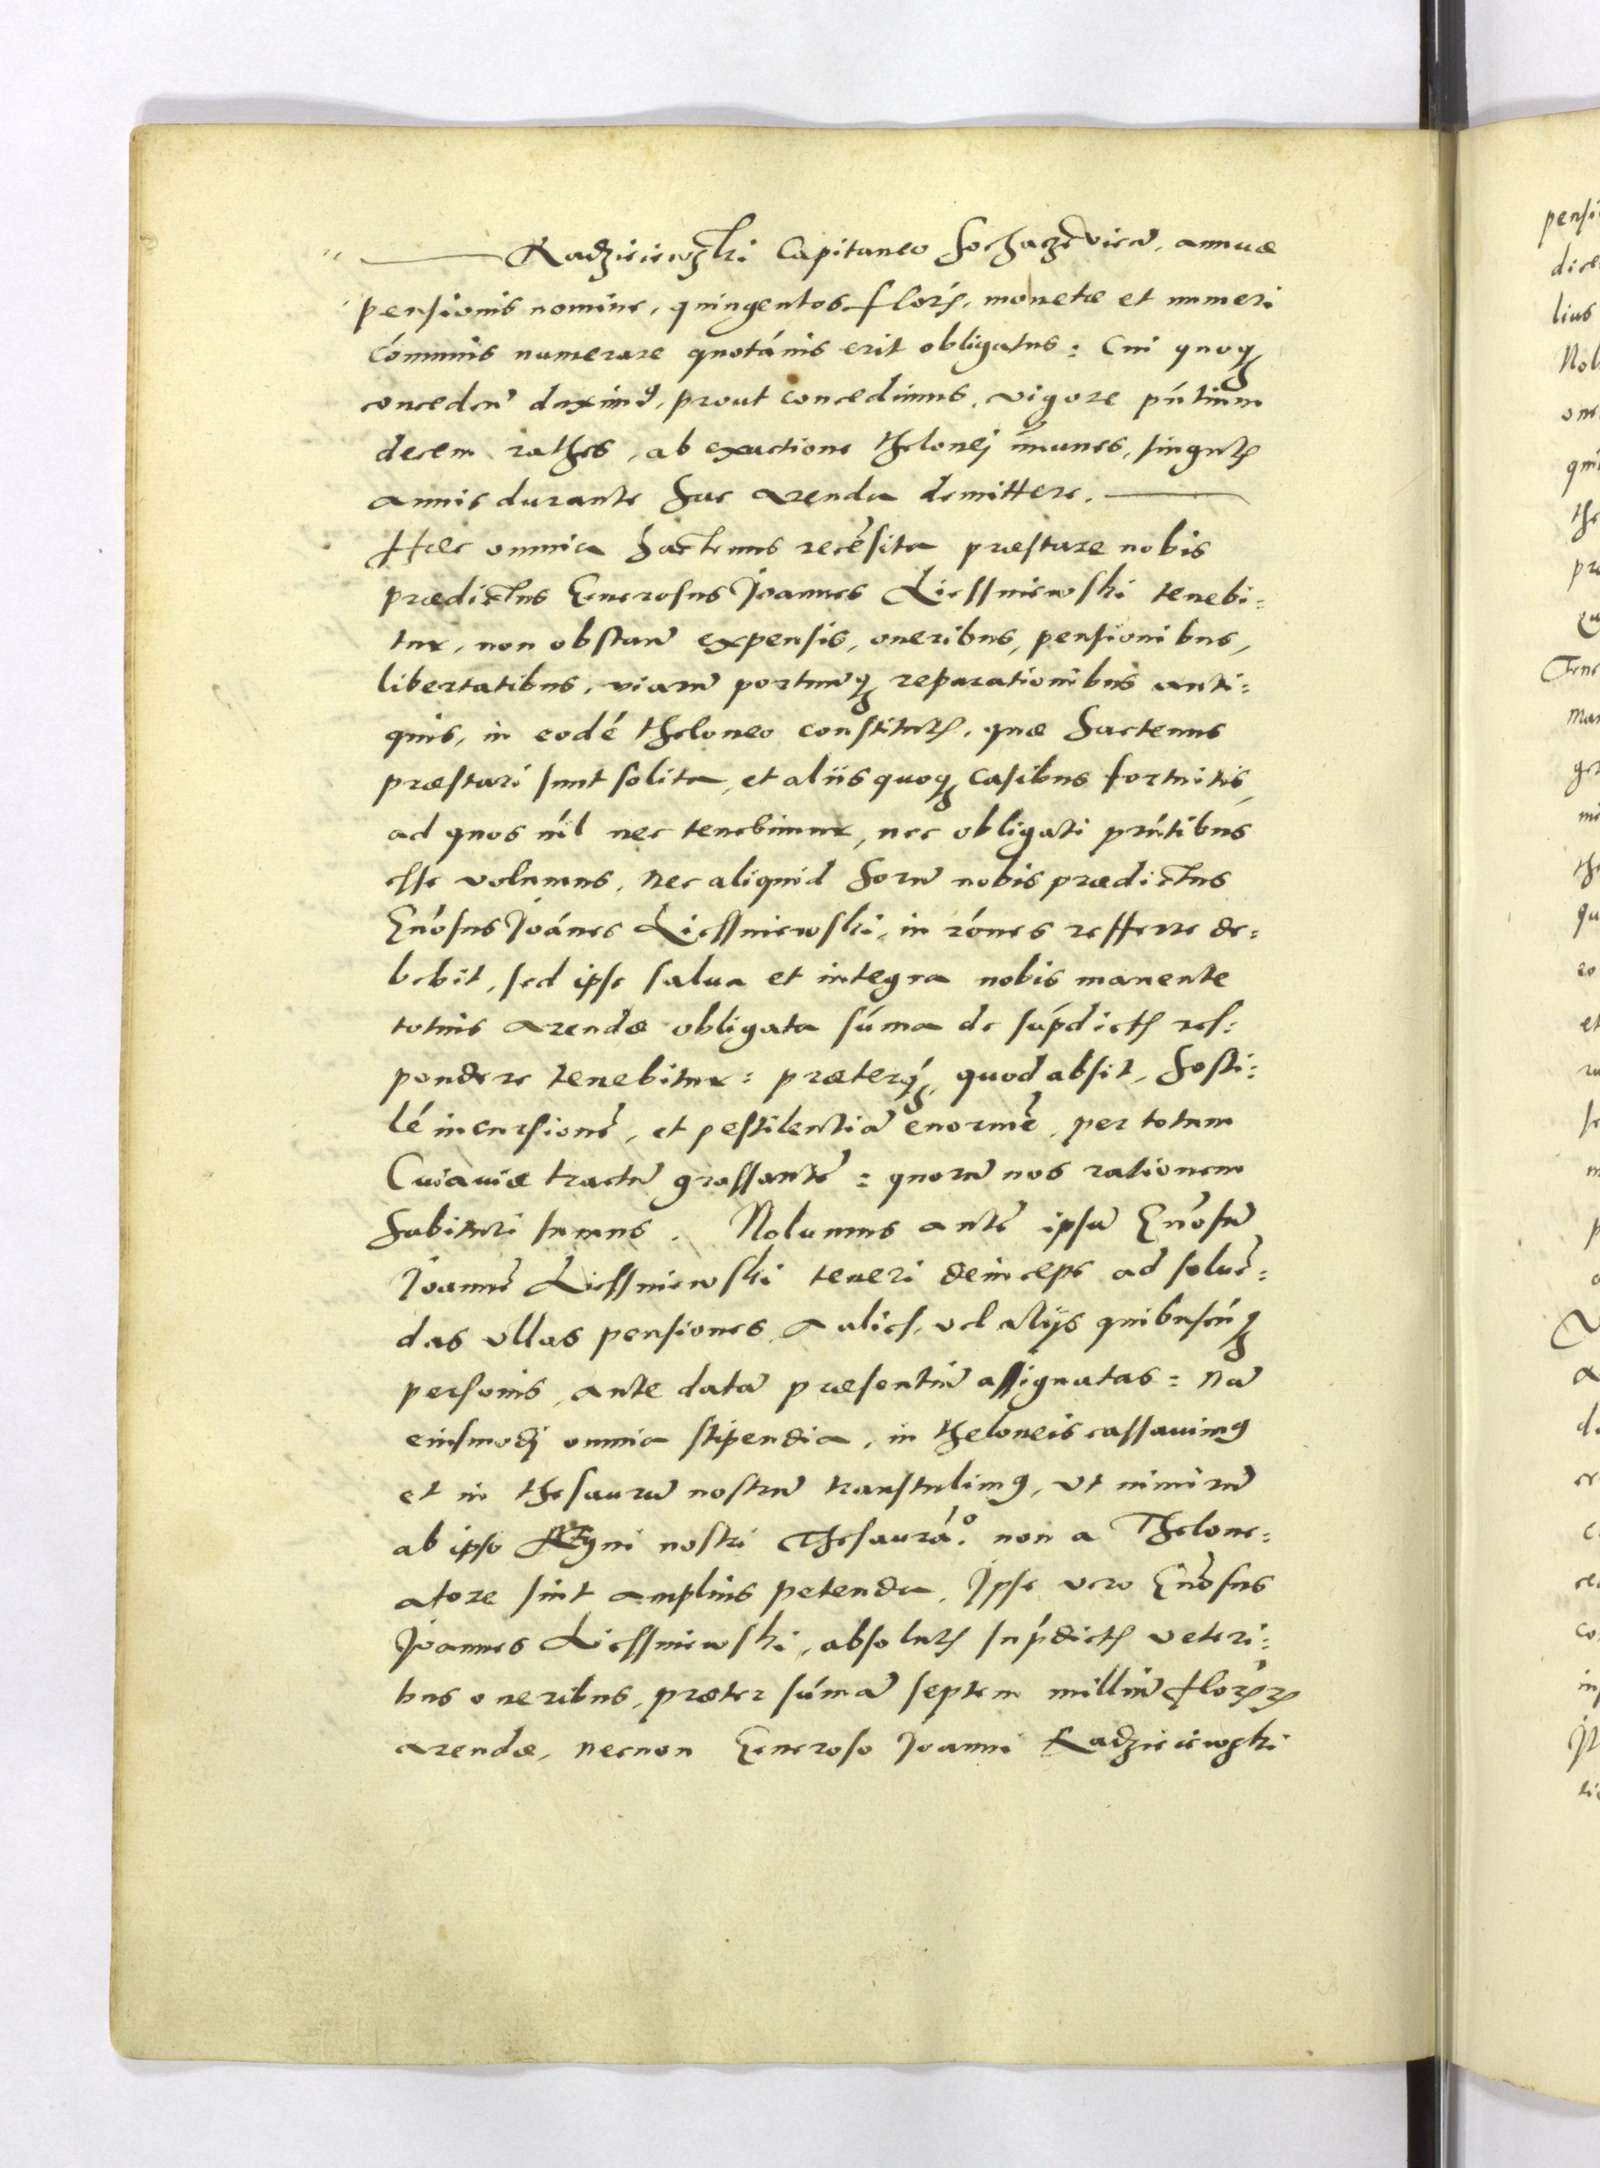 Radzieiewski Capitaneo Sochaczeviẽ, annuæ
pensionis nomine, quingentos floř, monetæ et numeri
cómunis numerare quotánis erit obligatus: Cui quoqȝ
concedeñ duximꝰ, prout concedimus, vigore pńtium
decem rathes, ab exactione thelonej īmunes, singulꝭ
annis durante hac arenda demittere.
Hæc omnia hactenus recẽsita præstare nobis
prædictus Generosus Joannes Liessniewski tenebi:
tur, non obstañ expensis, oneribus, pensionibus,
libertatibus, viarũ portuũqȝ reparationibus anti:
quis, in eodé theloneo constitutꝭ, quæ hactenus
præstari sunt solita, et aliis quoqȝ casibus fortuitis,
ad quos níl nec tenebimur, nec obligati prńtibus
esse volumus, nec aliquid horũ nobis prædictus
Gnósus Joánes Liessniewski, in rónes refferre de:
bebit, sed ipse salua et integra nobis manente
totius arendæ obligata súma de supdictꝭ res:
pondere tenebitur: præterqȝ, quod absit, hosti:
lé incursionẽ, et pestilentiã enormẽ, per totum
Cuiauiæ tractũ grassantẽ: quorũ nos rationem
habituri sumus. Nolumus autẽ ipsũ Gnósũ
Joannẽ Liessniewski teneri deinceps ad soluẽ:
das vllas pensiones, aulicꝭ, vel alijs quibuscúqȝ
personis, ante datã præsentiũ assignatas: nã
eiusmodj omnia stipendia, in theloneis cassauimꝰ
et in thesaurũ nostrũ transtulimꝰ, vt nimirũ
ab ipso Regni nostri Thesaurá.º non a Thelone:
atore sint amplius petenda. Jpse vero Gnósus
Joannes Liessniewski, absolutꝭ supdictꝭ veteri:
bus oneribus, præter súmã septem milliũ florꝭ
arendæ, necnon Generoso Joanni Radzieiewski